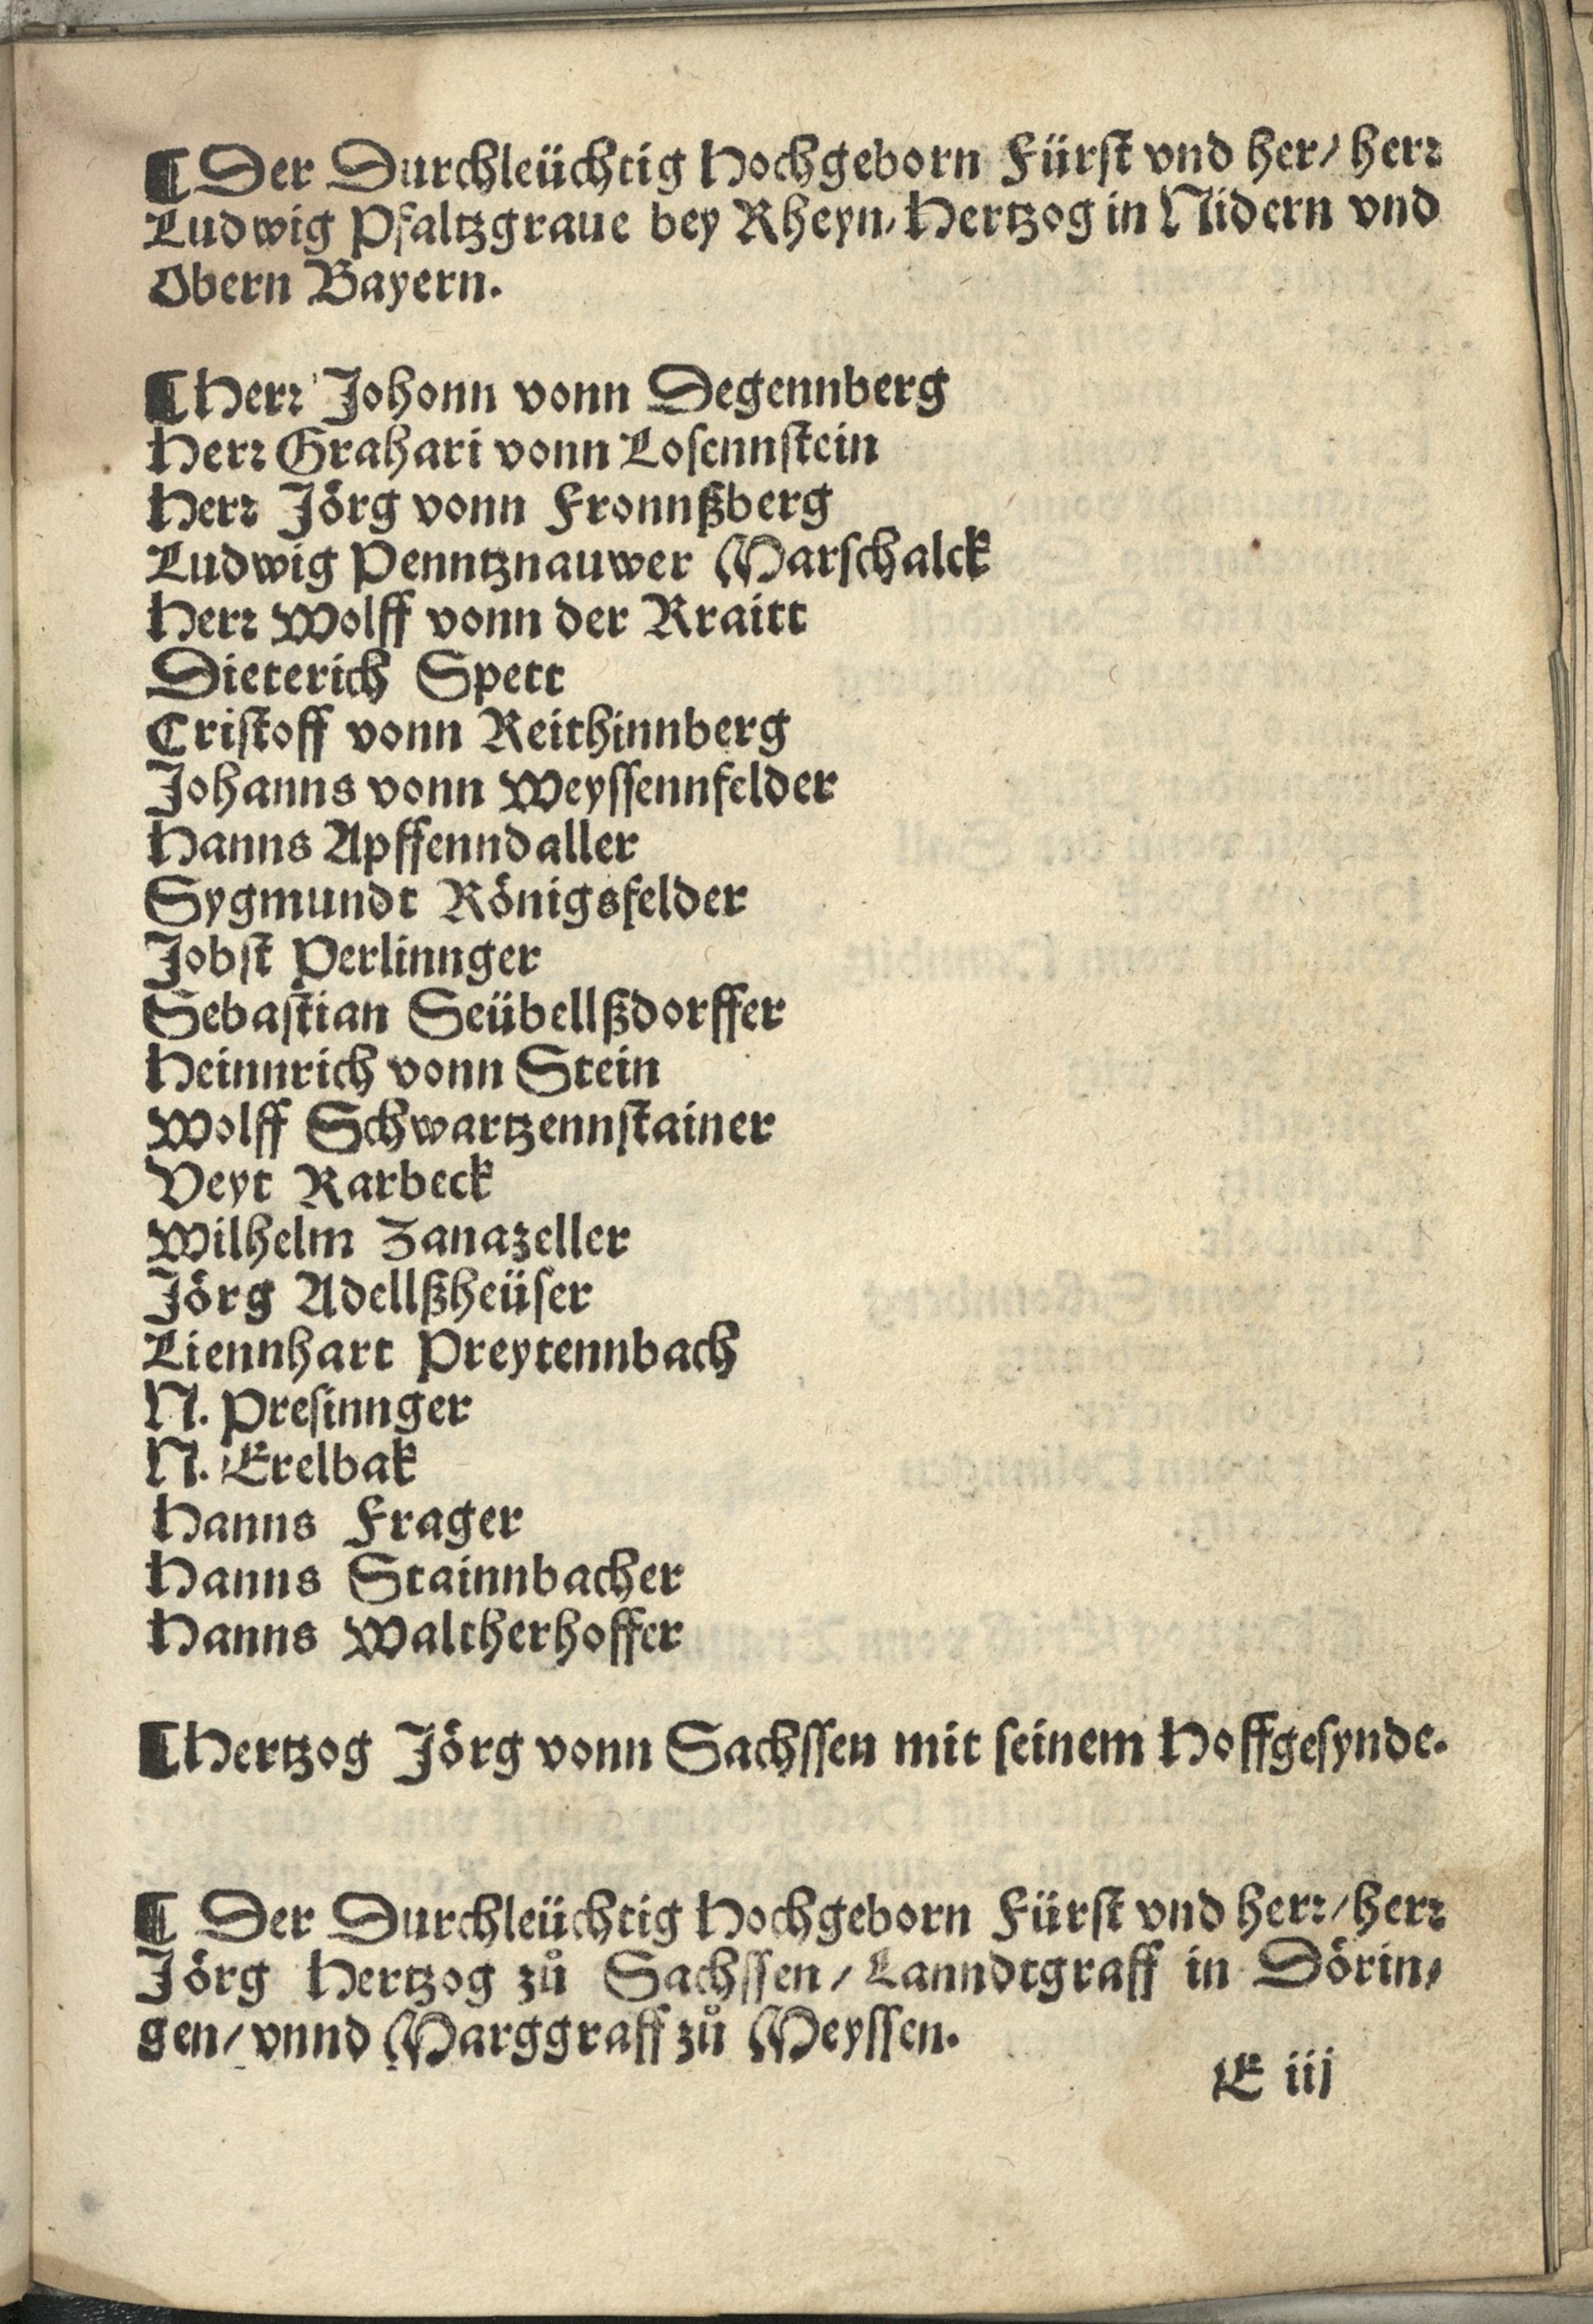 ¶ Der Durchleüchtig Hochgeborn Fürst vnd her/ herr
Ludwig Pfaltzgraue bey Rheyn/ Hertzog in Nidern vnd
Obern Bayern.
¶ Herr Johonn vonn Degennberg
Herr Grahari vonn Losennstein
Herr Jörg vonn Fronnßberg
Ludwig Penntznauwer Marschalck
Herr Wolff vonn der Kraitt
Dieterich Spett
Cristoff vonn Reithinnberg
Johanns vonn Weyssennfelder
Hanns Apffenndaller
Sygmundt Königsfelder
Jobst Perlinnger
Sebastian Seübellßdorffer
Heinnrich vonn Stein
Wolff Schwartzennstainer
Veyt Rarbeck
Wilhelm Zanazeller
Jörg Adellßheüser
Liennhart Preytennbach
N. Presinnger
N. Erelbak
Hanns Frager
Hanns Stainnbacher
Hanns Waltherhoffer
¶ Hertzog Jörg vonn Sachssen mit seinem Hoffgesynde.
¶ Der Durchleüchtig Hochgeborn Fürst vnd herr/ herr
Jörg Hertzog zů Sachssen/ Lanndtgraff in Dörin⸗
gen/ vnnd Marggraff zů Meyssen.
E iij